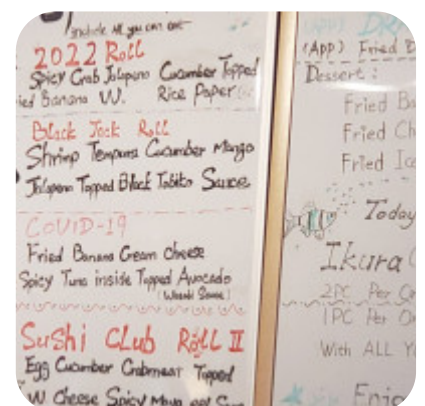 include All you can eat
2022 Roll
Spicy Crab Jalapeno Cucumber Topped
Fried Banana W. Rice Paper
Black Jack Roll
Shrimp Tempura Cucumber Mango
Jalapeno Topped Black Tobiko Sauce
COVID-19
Fried Banana Cream Cheese
Spicy Tuna inside Topped Avocado
(Wasabi Sauce)
Sushi Club Roll II
Egg Cucumber Crabmeat Topped
W Cheese Spicy Mayo eel
(App) Fried
Dessert:
Fried
Fried
Fried Ice
Today
Ikura
2PC Per
1PC Per
With ALL